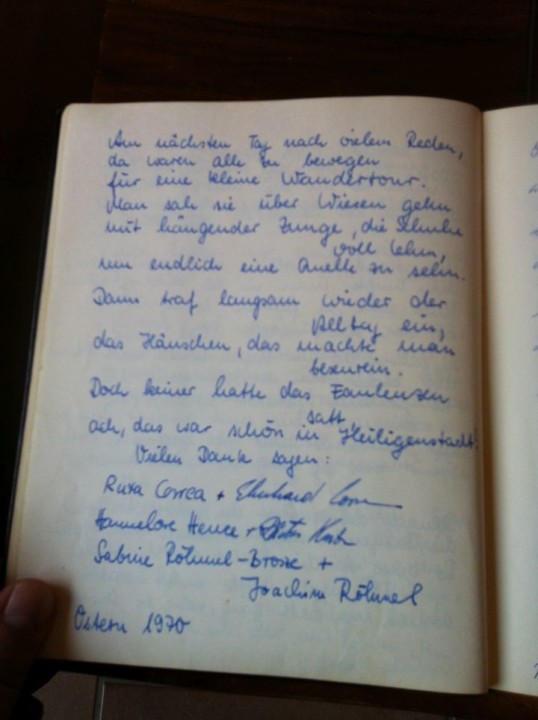 Am nächsten Tag nach vielem Reden,
da waren alle zu bewegen
für eine kleine Wandertour.
Man sah sie über Wiesen gehn
mit hängender Zunge, die Schuhe
voll Lehm,
um endlich eine Quelle zu sehn.
Dann traf langsam wieder der
Alltag ein,
das Häuschen, das machte man
besenrein.
Doch keiner hatte das Faulenzen
satt,
ach, das war schön in Heiligenstadt!
Vielen Dank sagen:
Correa + Ekkehard
Hannelore +
Sabine Röhmel- +
Joachim Röhmel
Ostern 1970